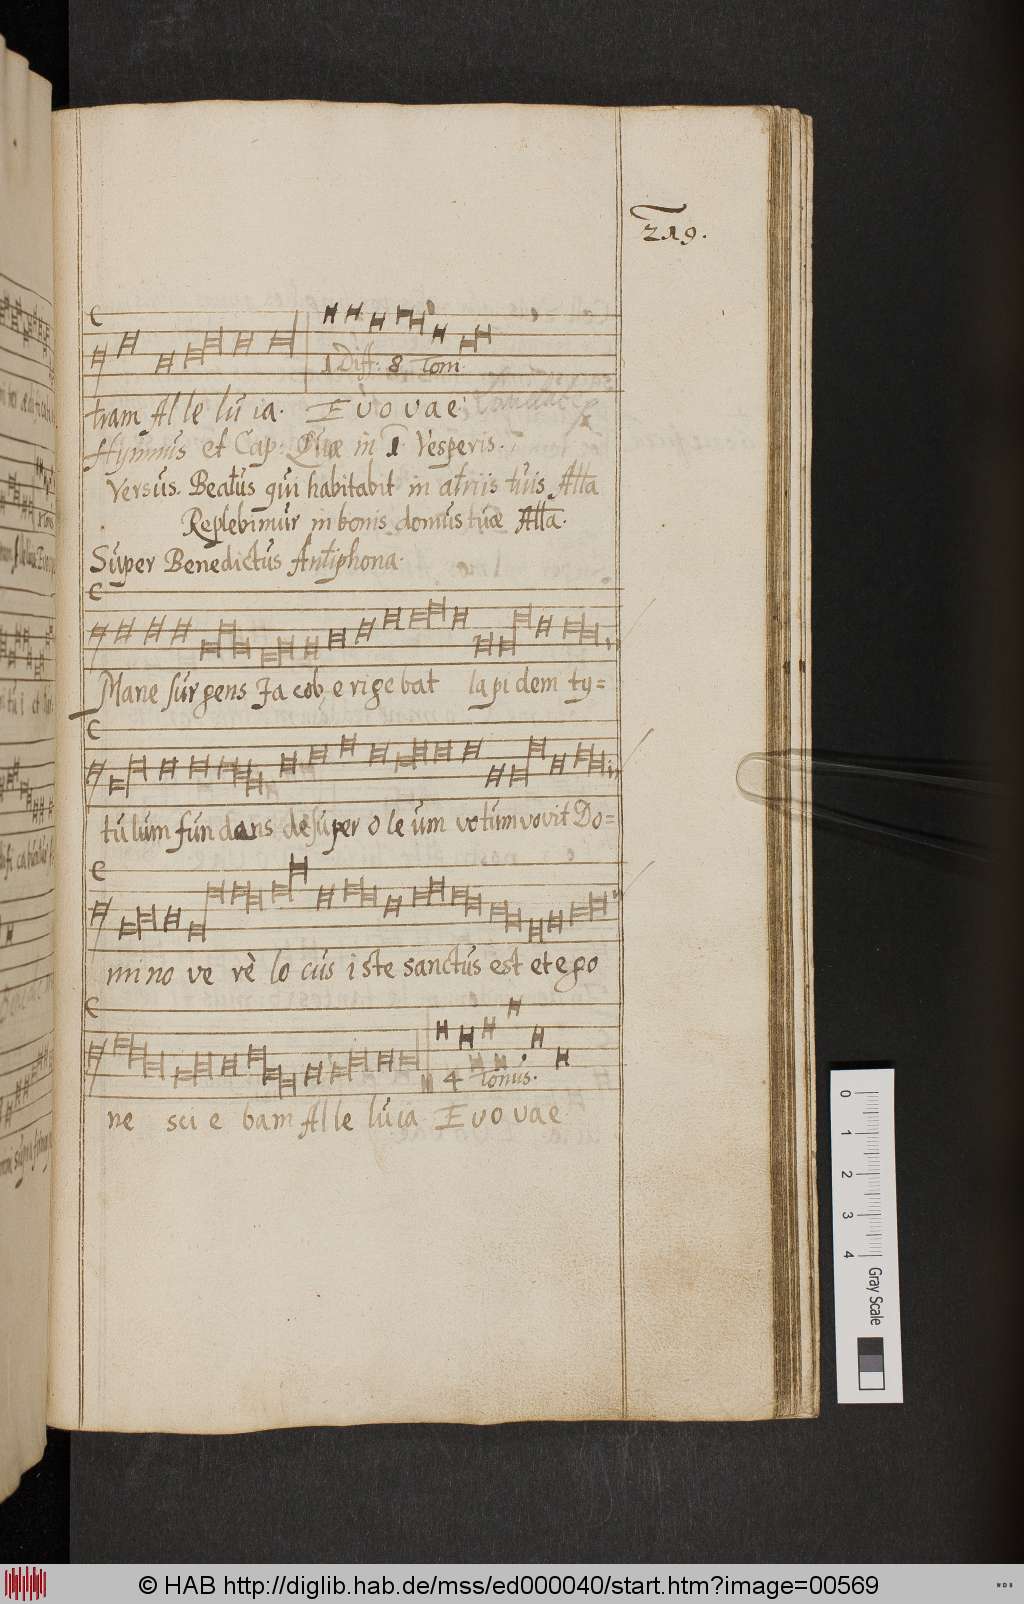 219.
1 Diff: 8 Tom.
tram Al le lu ia. E v o v a e.
Hymnus et Cap: Quæ in 1 Vesperis.
Versus. Beatus qui habitabit in atriis tuis Alla
Replebimur in bonis domus tuæ Alla.
Super Benedictus Antiphona.
Mane surgens Ja cob, e rige bat la pi dem ty=
tu lum fun dens desuper o le um votum vovit Do=
mi no ve rè lo cus i ste sanctus est et ego
4 tonus.
ne sci e bam Al le lu ia E v o v a e
0 1 2 3 4 Gray Scale
© HAB http://diglib.hab.de/mss/ed000040/start.htm?image=00569